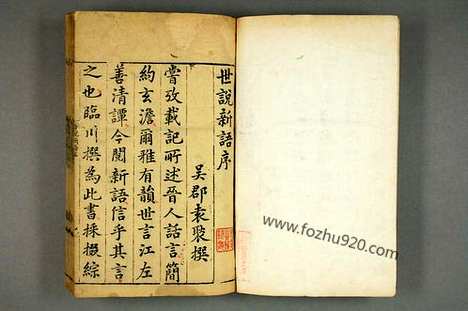 世說新語序
吳郡袁褧撰
嘗攷載記所述晉人話言簡
約玄澹爾雅有韻世言江左
善清譚今閱新語信乎其言
之也臨川撰爲此書採掇綜
www.fozhu920.com